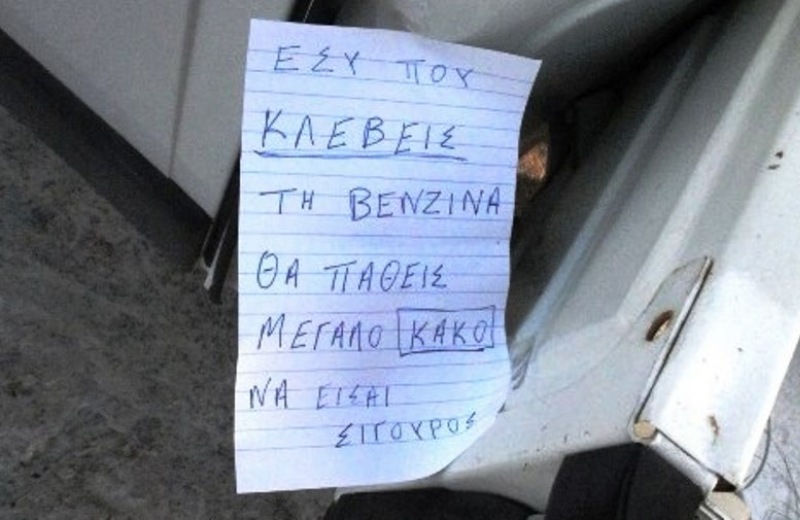 ΕΣΥ ΠΟΥ
ΚΛΕΒΕΙΣ
ΤΗ ΒΕΝΖΙΝΑ
ΘΑ ΠΑΘΕΙΣ
ΜΕΓΑΛΟ ΚΑΚΟ
ΝΑ ΕΙΣΑΙ
ΣΙΓΟΥΡΟΣ